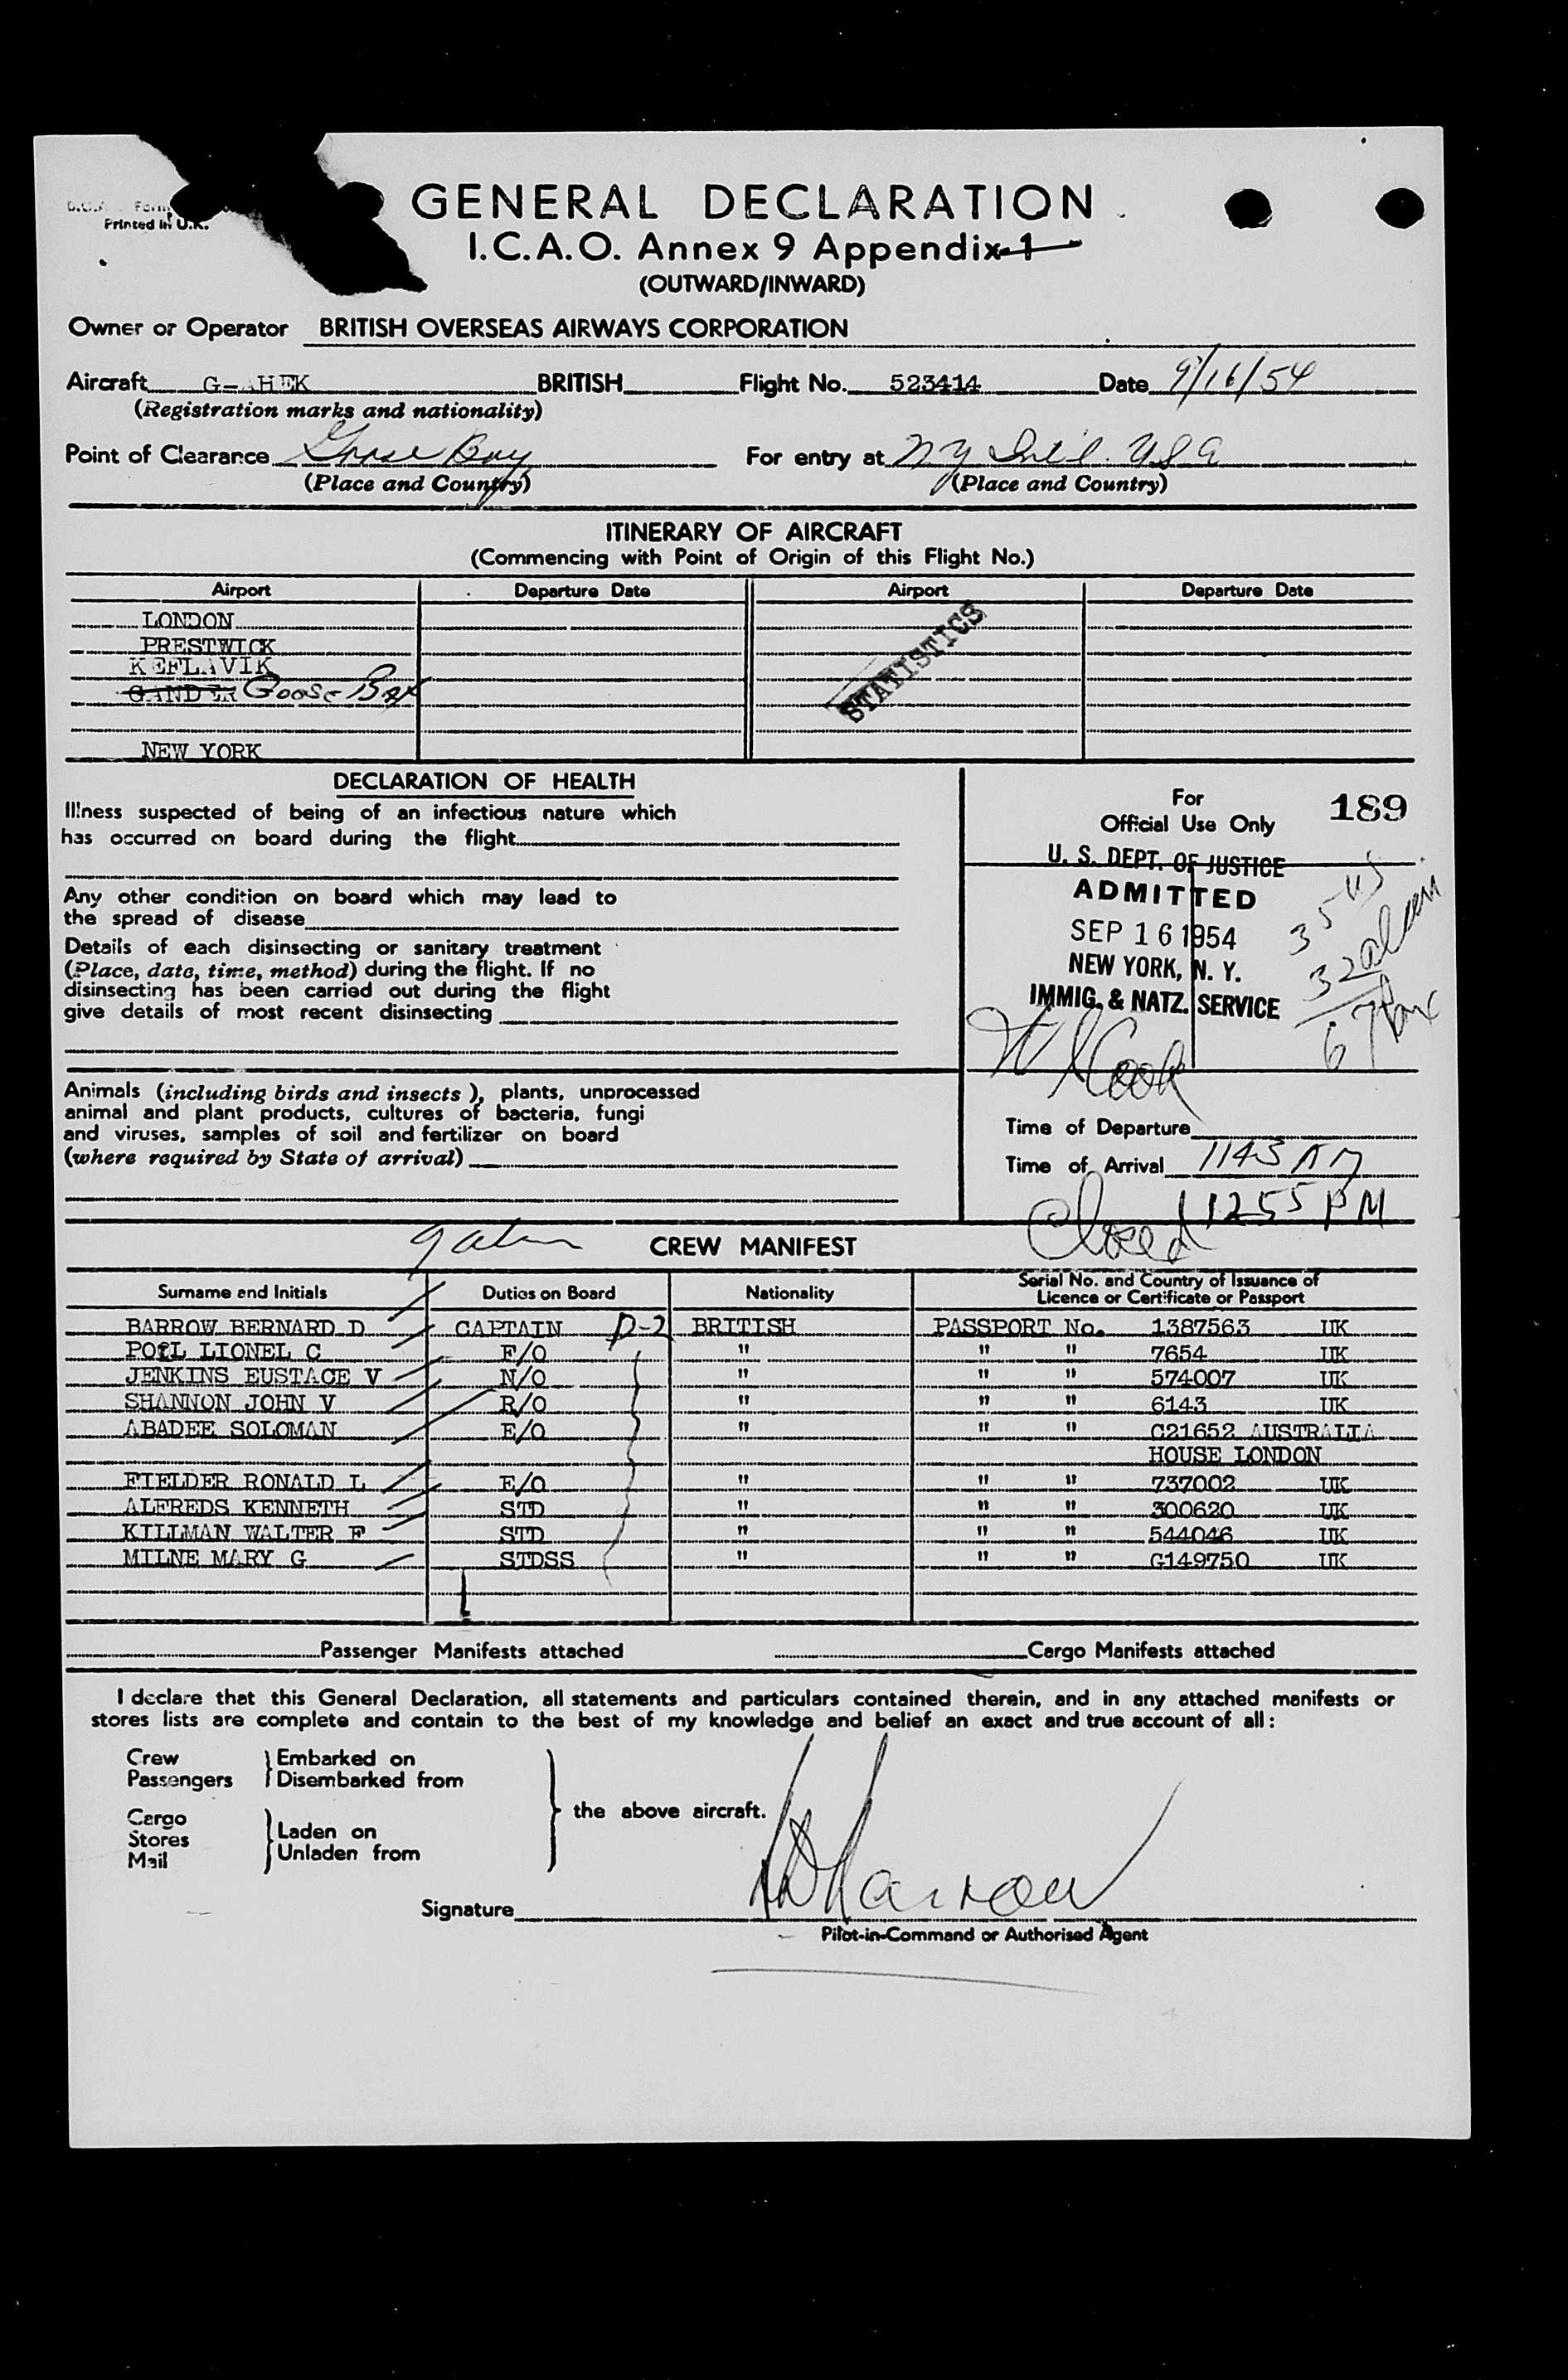 Printed in U.K.
GENERAL DECLARATION
I.C.A.O. Annex 9 Appendix 1
(OUTWARD/INWARD)
Owner or Operator BRITISH OVERSEAS AIRWAYS CORPORATION
Aircraft G- AHEK BRITISH Flight No. 523414 Date 9/16/54
(Registration marks and nationality)
Point of Clearance Goose Bay For entry at N Y Int'l. USA
(Place and Country) (Place and Country)
ITINERARY OF AIRCRAFT
(Commencing with Point of Origin of this Flight No.)
Airport Departure Date Airport Departure Date
LONDON
PRESTWICK
KEFLAVIK
GANDER Goose Bay
NEW YORK
STATISTICS
DECLARATION OF HEALTH
Illness suspected of being of an infectious nature which
has occurred on board during the flight
Any other condition on board which may lead to
the spread of disease
Details of each disinsecting or sanitary treatment
(Place, date, time, method) during the flight. If no
disinsecting has been carried out during the flight
give details of most recent disinsecting
Animals (including birds and insects ), plants, unprocessed
animal and plant products, cultures of bacteria, fungi
and viruses, samples of soil and fertilizer on board
(where required by State of arrival)
For
Official Use Only
189
U. S. DEPT. OF JUSTICE
ADMITTED
SEP 16 1954
NEW YORK, N. Y.
IMMIG. & NATZ. SERVICE
35 US
32 alien
67
Cook
Time of Departure
Time of Arrival 1143 AM
Closed 1255 PM
9 alien
CREW MANIFEST
Surname and Initials Duties on Board Nationality Serial No. and Country of Issuance of
Licence or Certificate or Passport
BARROW BERNARD D CAPTAIN D-2 BRITISH PASSPORT No. 1387563 UK
POLL LIONEL C F/O " " " 7654 UK
JENKINS EUSTACE V N/O " " " 574007 UK
SHANNON JOHN V R/O " " " 6143 UK
ABADEE SOLOMAN E/O " " " C21652 AUSTRALIA
HOUSE LONDON
FIELDER RONALD L E/O " " " 737002 UK
ALFREDS KENNETH STD " " " 300620 UK
KILLMAN WALTER F STD " " " 544046 UK
MILNE MARY G STDSS " " " G149750 UK
Passenger Manifests attached Cargo Manifests attached
I declare that this General Declaration, all statements and particulars contained therein, and in any attached manifests or
stores lists are complete and contain to the best of my knowledge and belief an exact and true account of all:
Crew Embarked on
Passengers Disembarked from
the above aircraft.
Cargo
Stores Laden on
Mail Unladen from
Signature BD Barrow
Pilot-in-Command or Authorised Agent